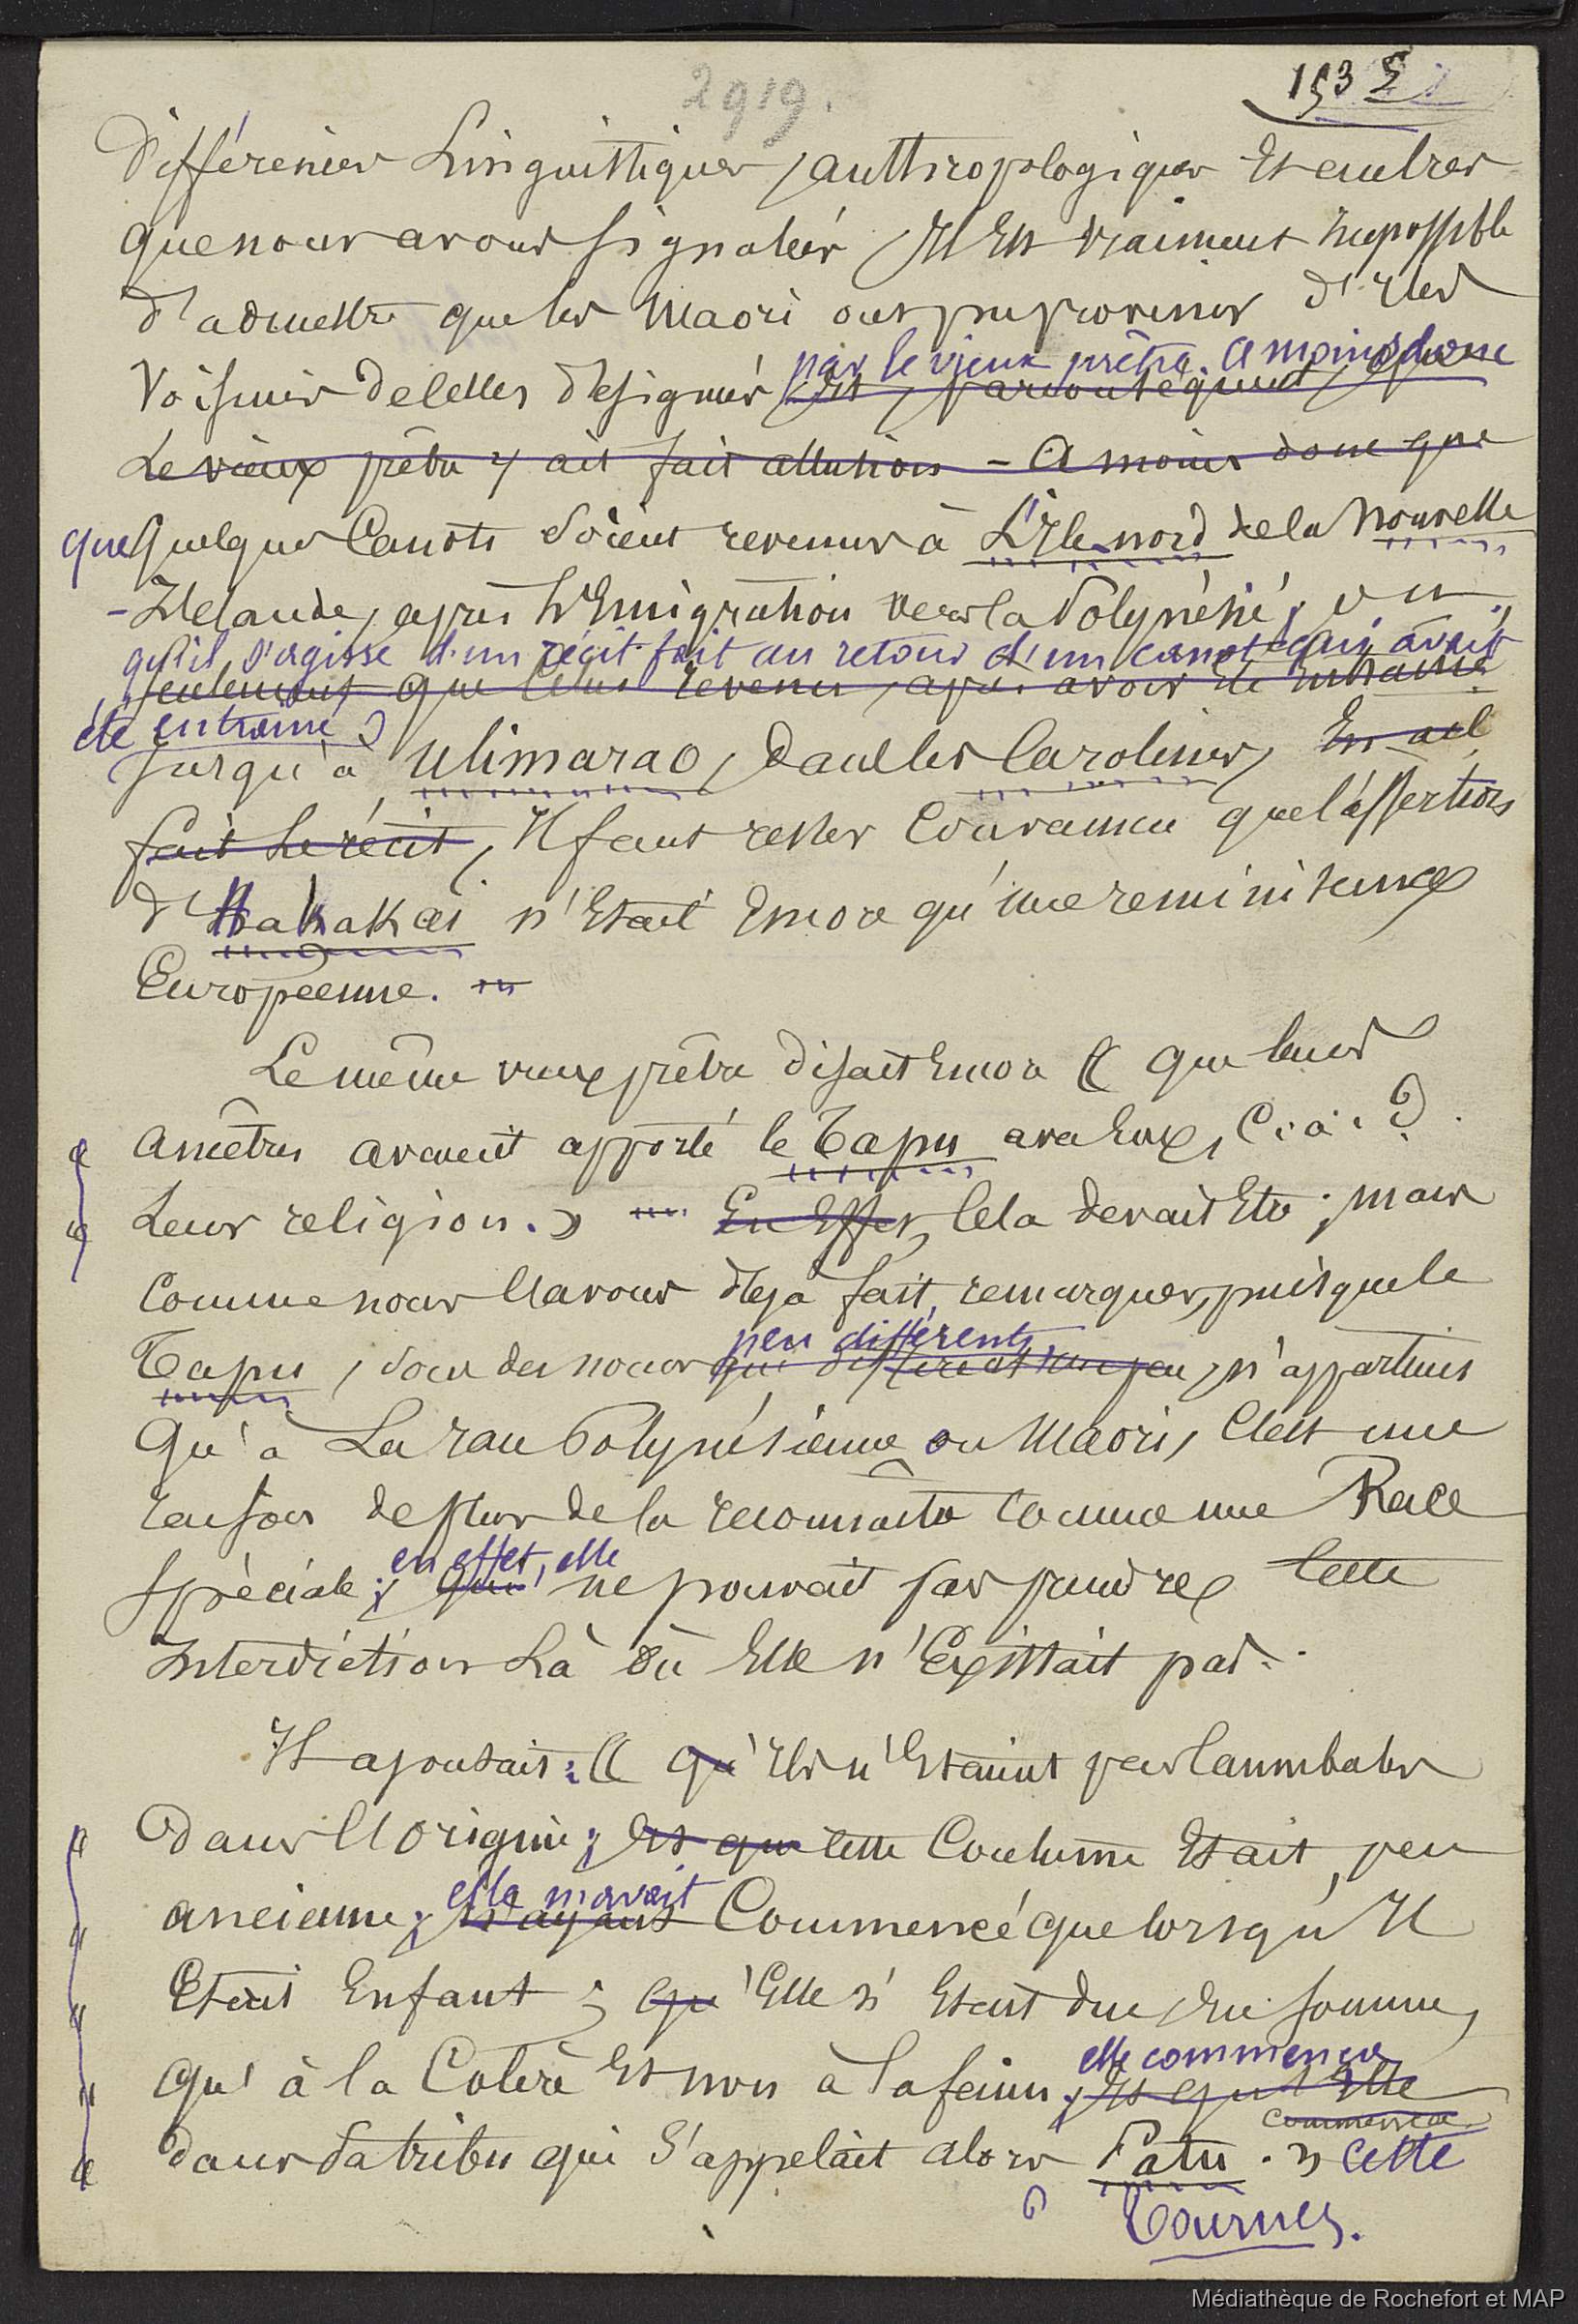 2919.
153
différences linguistiques, anthropologiques et autres
que nous avons signalées, Il est vraiment impossible
d'admettre que les Maori ont pu provenir d'Iles
par le vieux prêtre. A moins donc
voisines de celles désignées, et, par conséquent, que
Le vieux prêtre y ait fait allusion - A moins donc que
que quelques Canots soient revenus à L'Ile nord de la Nouvelle
-Zélande, après l'Emigration vers la Polynésie, ou
qu'il s'agisse d'un récit fait au retour d'un canot qui avait
seulement que celui revenu, après avoir été entrainé
été entrainé
jusqu'à Ulimarao, dans les Carolines, En ait
fait le récit, Il faut rester convaincu que l'assertion
d'Hakakai n'était encore qu'une reminiscence
Européenne.
Le même vieux prêtre disait encore « que leurs
ancêtres avaient apporté le Tapu avec eux, C. à. d.
Leur religion. » En effet, Cela devait être ; mais
Comme nous l'avons déjà fait remarquer, puisque le
peu différents
Tapu, sous des noms qui diffèrent un peu, n'appartient
qu'à La race Polynésienne ou Maori, C'est une
raison de plus de la reconnaitre comme une Race
en effet, elle
spéciale ; qui ne pouvait pas prendre cette
Interdiction Là où Elle n'Existait pas.
Il ajoutait : « qu'Ils n'Etaient pas Cannibales
dans l'origine ; Et que cette Coutume Etait peu
elle n'avait
ancienne ; n'ayant Commencé que lorsqu'Il
Etait Enfant ; qu'Elle n'Etait due, En somme,
elle commença
qu'à la Colère Et non à la faim ; Et qu'Elle
commença
dans sa tribu qui s'appelait alors Patu. » cette
Tournez.
Médiathèque de Rochefort et MAP